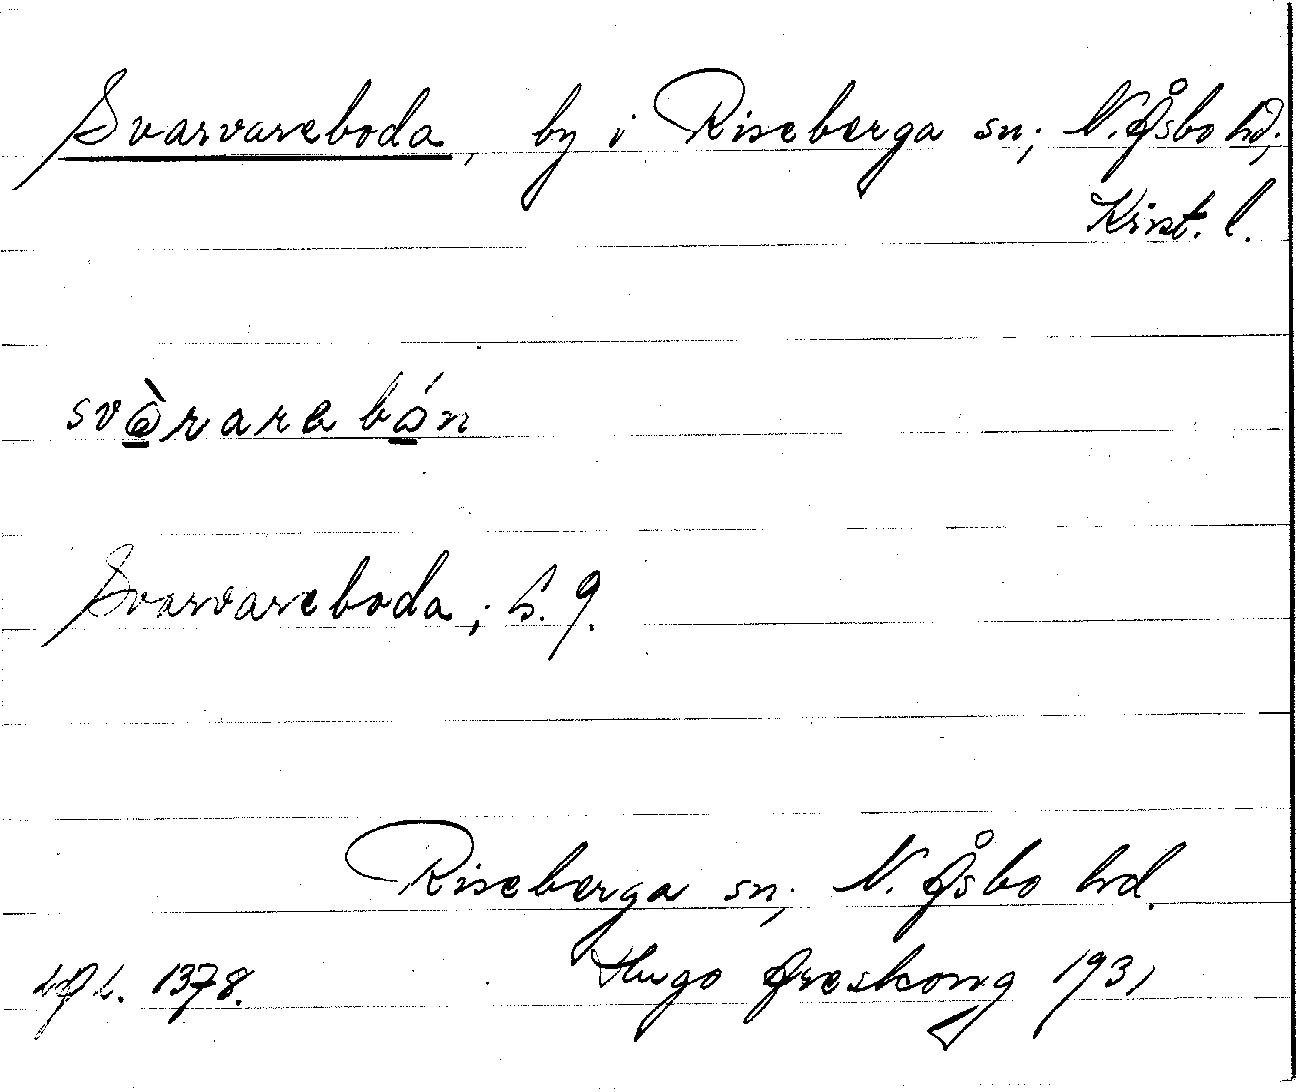 Svarvareboda, by i Riseberga sn; N. Åsbo hd,
Krist. l.
svàrara bón
Svarvareboda; S. 9.
Riseberga sn; N. Åsbo hd.
1378. Hugo Areskoug 1931